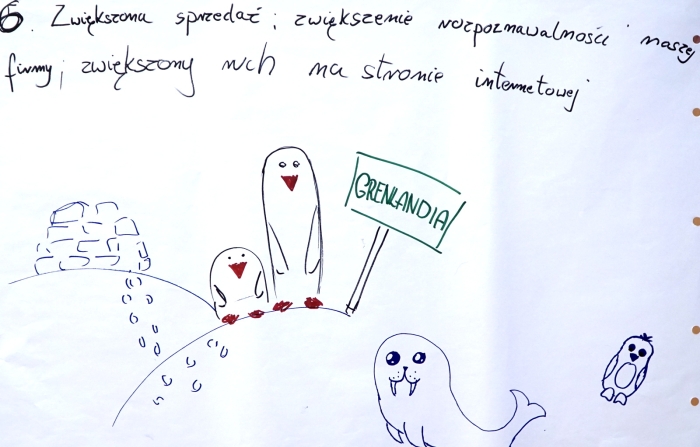 6. Zwiększona sprzedaż; zwiększenie rozpoznawalności naszej
firmy; zwiększony ruch na stronie internetowej
GRENLANDIA